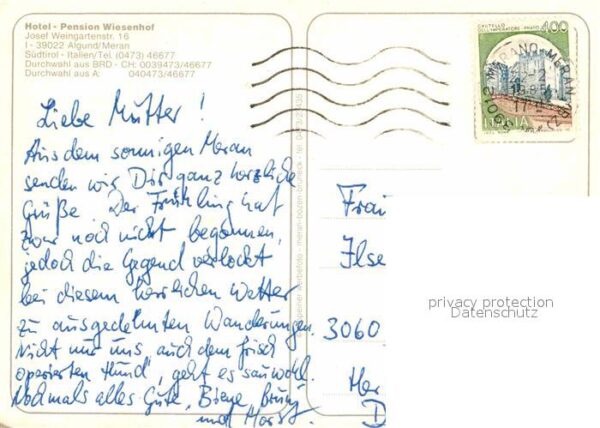 Hotel - Pension Wiesenhof
Josef Weingartenstr. 16
I - 39022 Algund/Meran
Südtirol - Italien/Tel. (0473) 46677
Durchwahl aus BRD - CH: 0039473/46677
Durchwahl aus A: 040473/46677
Liebe Mutter!
Aus dem sonnigen Meran
senden wir Dir ganz herzliche
Grüße. Der Frühling hat
zwar noch nicht begonnen,
jedoch die Gegend verlockt
bei diesem herrlichen Wetter
zu ausgedehnten Wanderungen.
Nicht nur uns, auch dem frisch
operierten Hund", geht es sauwohl.
Nochmals alles Gute, Biene,
und Horst.
CASTELLO
DELL'IMPERATORE - PRATO
400
ITALIA
MERANO-MERAN
39012
Frau
Ilse
3060
Her
D
privacy protection
Datenschutz